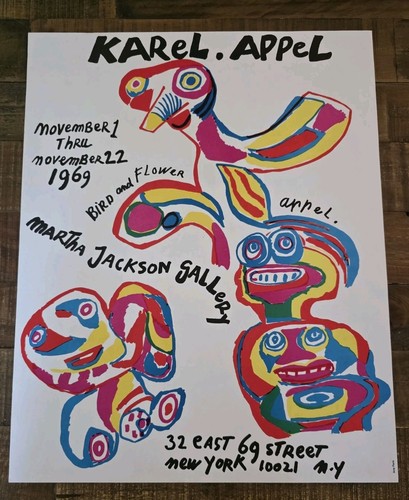 KAREL. APPEL
november 1
THRU
november 22
1969
BIRD and FLOWER
appel.
MARTHA JACKSON GALLERY
32 EAST 69 STREET
new YORK 10021 N.Y